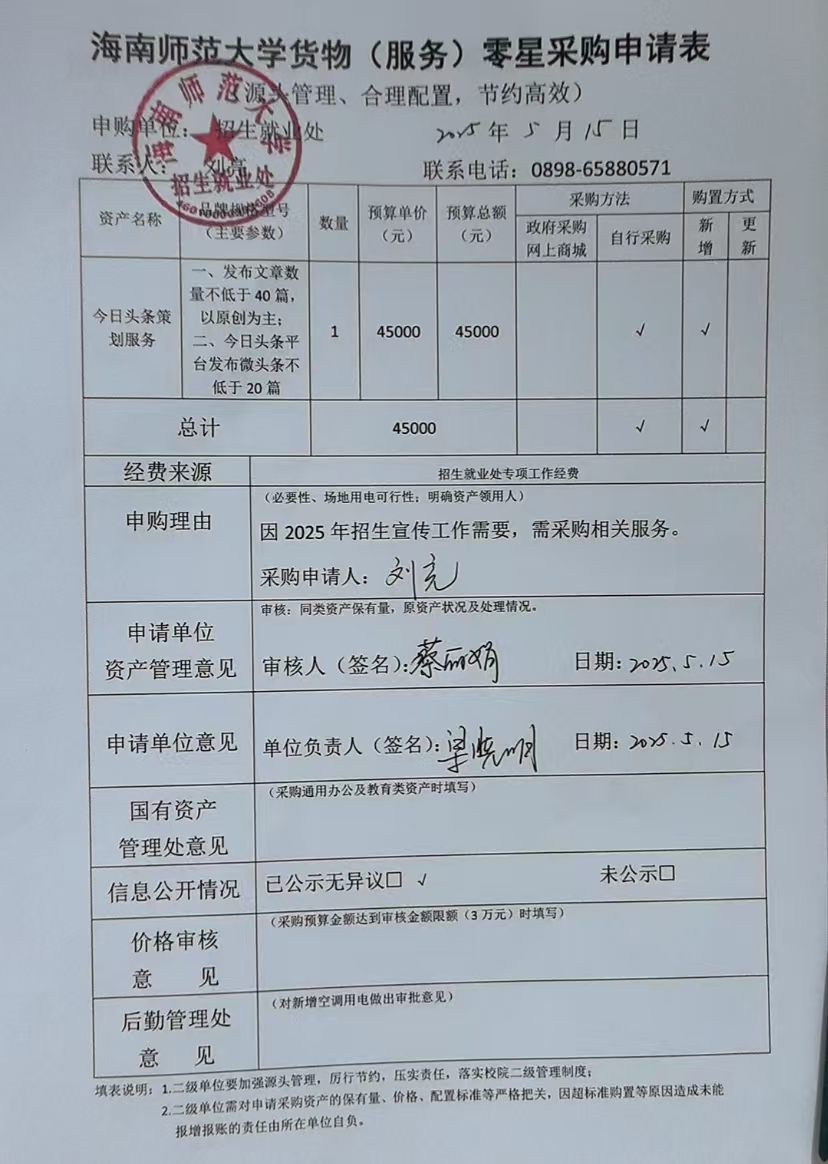 海南师范大学货物（服务）零星采购申请表
（源头管理、合理配置，节约高效）
申购单位： 招生就业处 2025 年 5 月 15 日
联系人： 刘亮 联系电话：0898-65880571
海南师范大学
招生就业处
资产名称 品牌规格型号（主要参数） 数量 预算单价（元） 预算总额（元） 采购方法 购置方式
政府采购网上商城 自行采购 新增 更新
今日头条策划服务
一、发布文章数
量不低于 40 篇，
以原创为主；
二、今日头条平
台发布微头条不
低于 20 篇
1 45000 45000 √ √
总计 45000 √ √
经费来源 招生就业处专项工作经费
申购理由
（必要性、场地用电可行性；明确资产领用人）
因 2025 年招生宣传工作需要，需采购相关服务。
采购申请人：刘亮
申请单位
资产管理意见
审核：同类资产保有量，原资产状况及处理情况。
审核人（签名）：蔡丽娟 日期：2025.5.15
申请单位意见 单位负责人（签名）：梁晓明 日期：2025.5.15
国有资产
管理处意见
（采购通用办公及教育类资产时填写）
信息公开情况 已公示无异议☐ √ 未公示☐
价格审核
意 见
（采购预算金额达到审核金额限额（3 万元）时填写）
后勤管理处
意 见
（对新增空调用电做出审批意见）
填表说明：1.二级单位要加强源头管理，厉行节约，压实责任，落实校院二级管理制度；
2.二级单位需对申请采购资产的保有量、价格、配置标准等严格把关，因超标准购置等原因造成未能
报增报账的责任由所在单位自负。